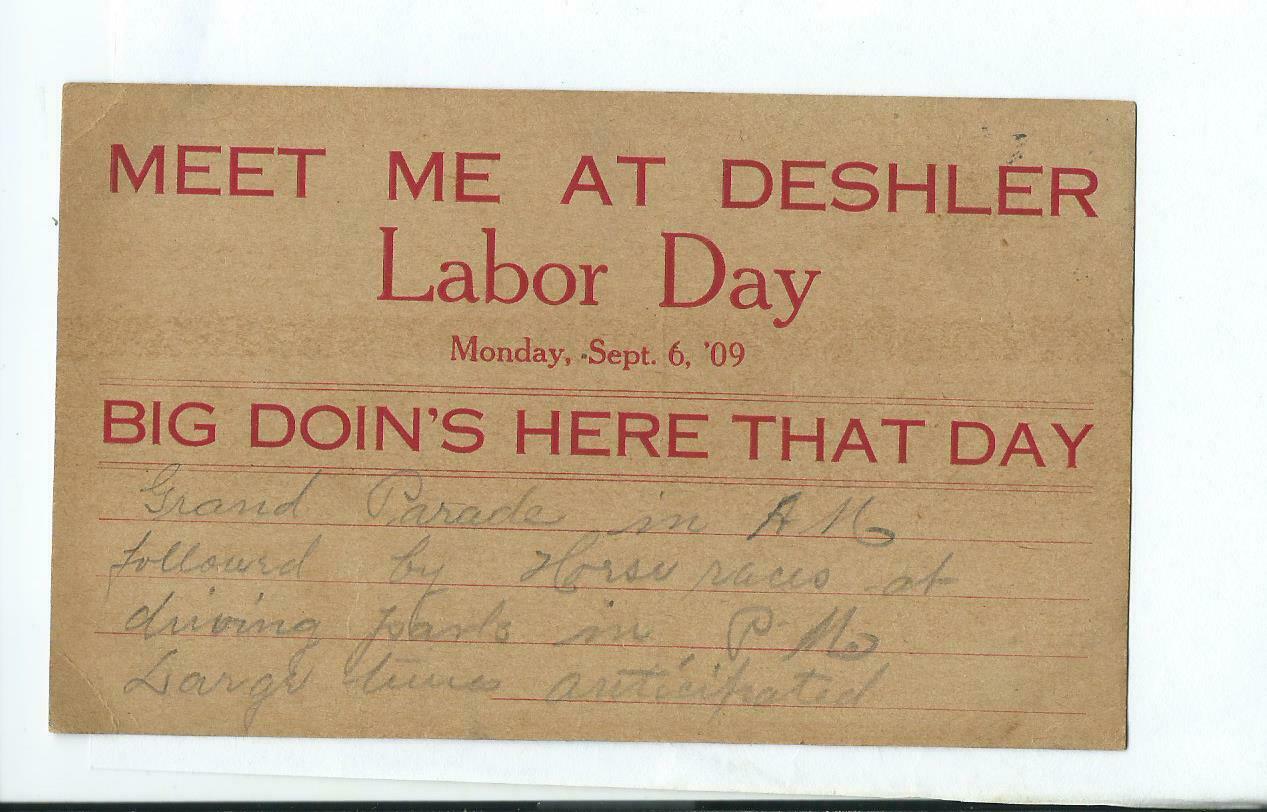 MEET ME AT DESHLER
Labor Day
Monday, Sept. 6, '09
BIG DOIN'S HERE THAT DAY
Grand Parade in A M
followed by Horse races at
driving park in P M
Large times anticipated